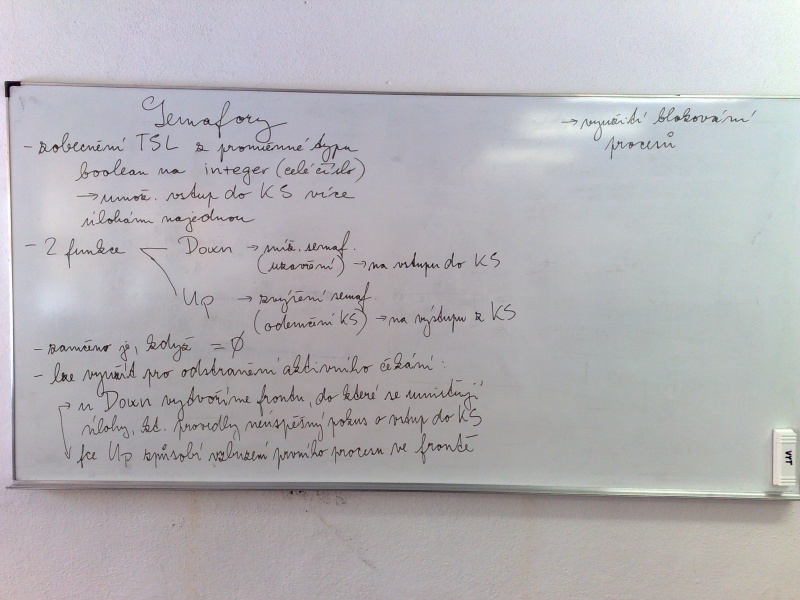 Semafory
- zobecnění TSL z proměnné typu
boolean na integer (celé číslo)
→ umož. vstup do KS více
úlohám najednou
- 2 funkce Down → sníž. semaf.
(uzavření) → na vstupu do KS
Up → zvýšení semaf.
(odemčení KS) → na výstupu z KS
- zamčeno je, když = Ø
- lze využít pro odstranění aktivního čekání:
u Down vytvoříme frontu, do které se umisťují
úlohy, kt. provedly neúspěšný pokus o vstup do KS
fce Up způsobí vzbuzení prvního procesu ve frontě
→ využití blokování
procesů
VYT